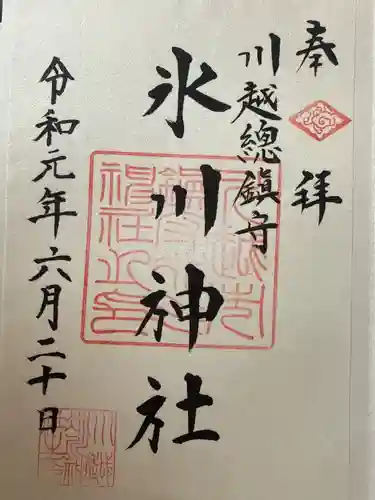 奉拝
川越總鎮守
氷川神社
令和元年六月二十日